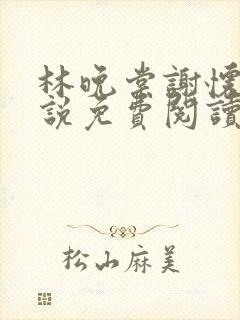 林晚棠謝懷
說免費閱讀
松山麻美